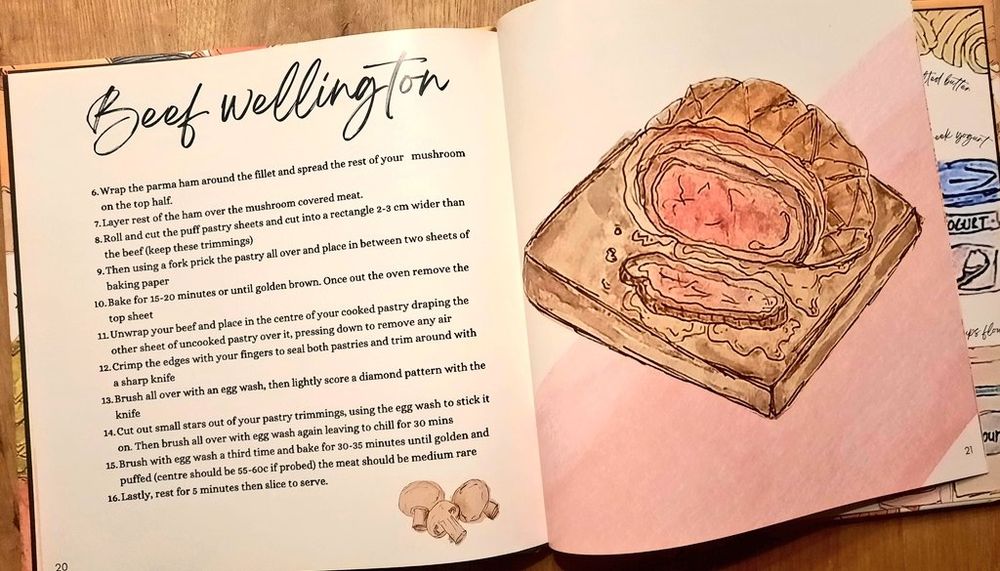 Beef wellington
6. Wrap the parma ham around the fillet and spread the rest of your mushroom
on the top half.
7. Layer rest of the ham over the mushroom covered meat.
8. Roll and cut the puff pastry sheets and cut into a rectangle 2-3 cm wider than
the beef (keep these trimmings)
9. Then using a fork prick the pastry all over and place in between two sheets of
baking paper
10. Bake for 15-20 minutes or until golden brown. Once out the oven remove the
top sheet
11. Unwrap your beef and place in the centre of your cooked pastry draping the
other sheet of uncooked pastry over it, pressing down to remove any air
12. Crimp the edges with your fingers to seal both pastries and trim around with
a sharp knife
13. Brush all over with an egg wash, then lightly score a diamond pattern with the
knife
14. Cut out small stars out of your pastry trimmings, using the egg wash to stick it
on. Then brush all over with egg wash again leaving to chill for 30 mins
15. Brush with egg wash a third time and bake for 30-35 minutes until golden and
puffed (centre should be 55-60c if probed) the meat should be medium rare
16. Lastly, rest for 5 minutes then slice to serve.
20
21
butter
yogurt